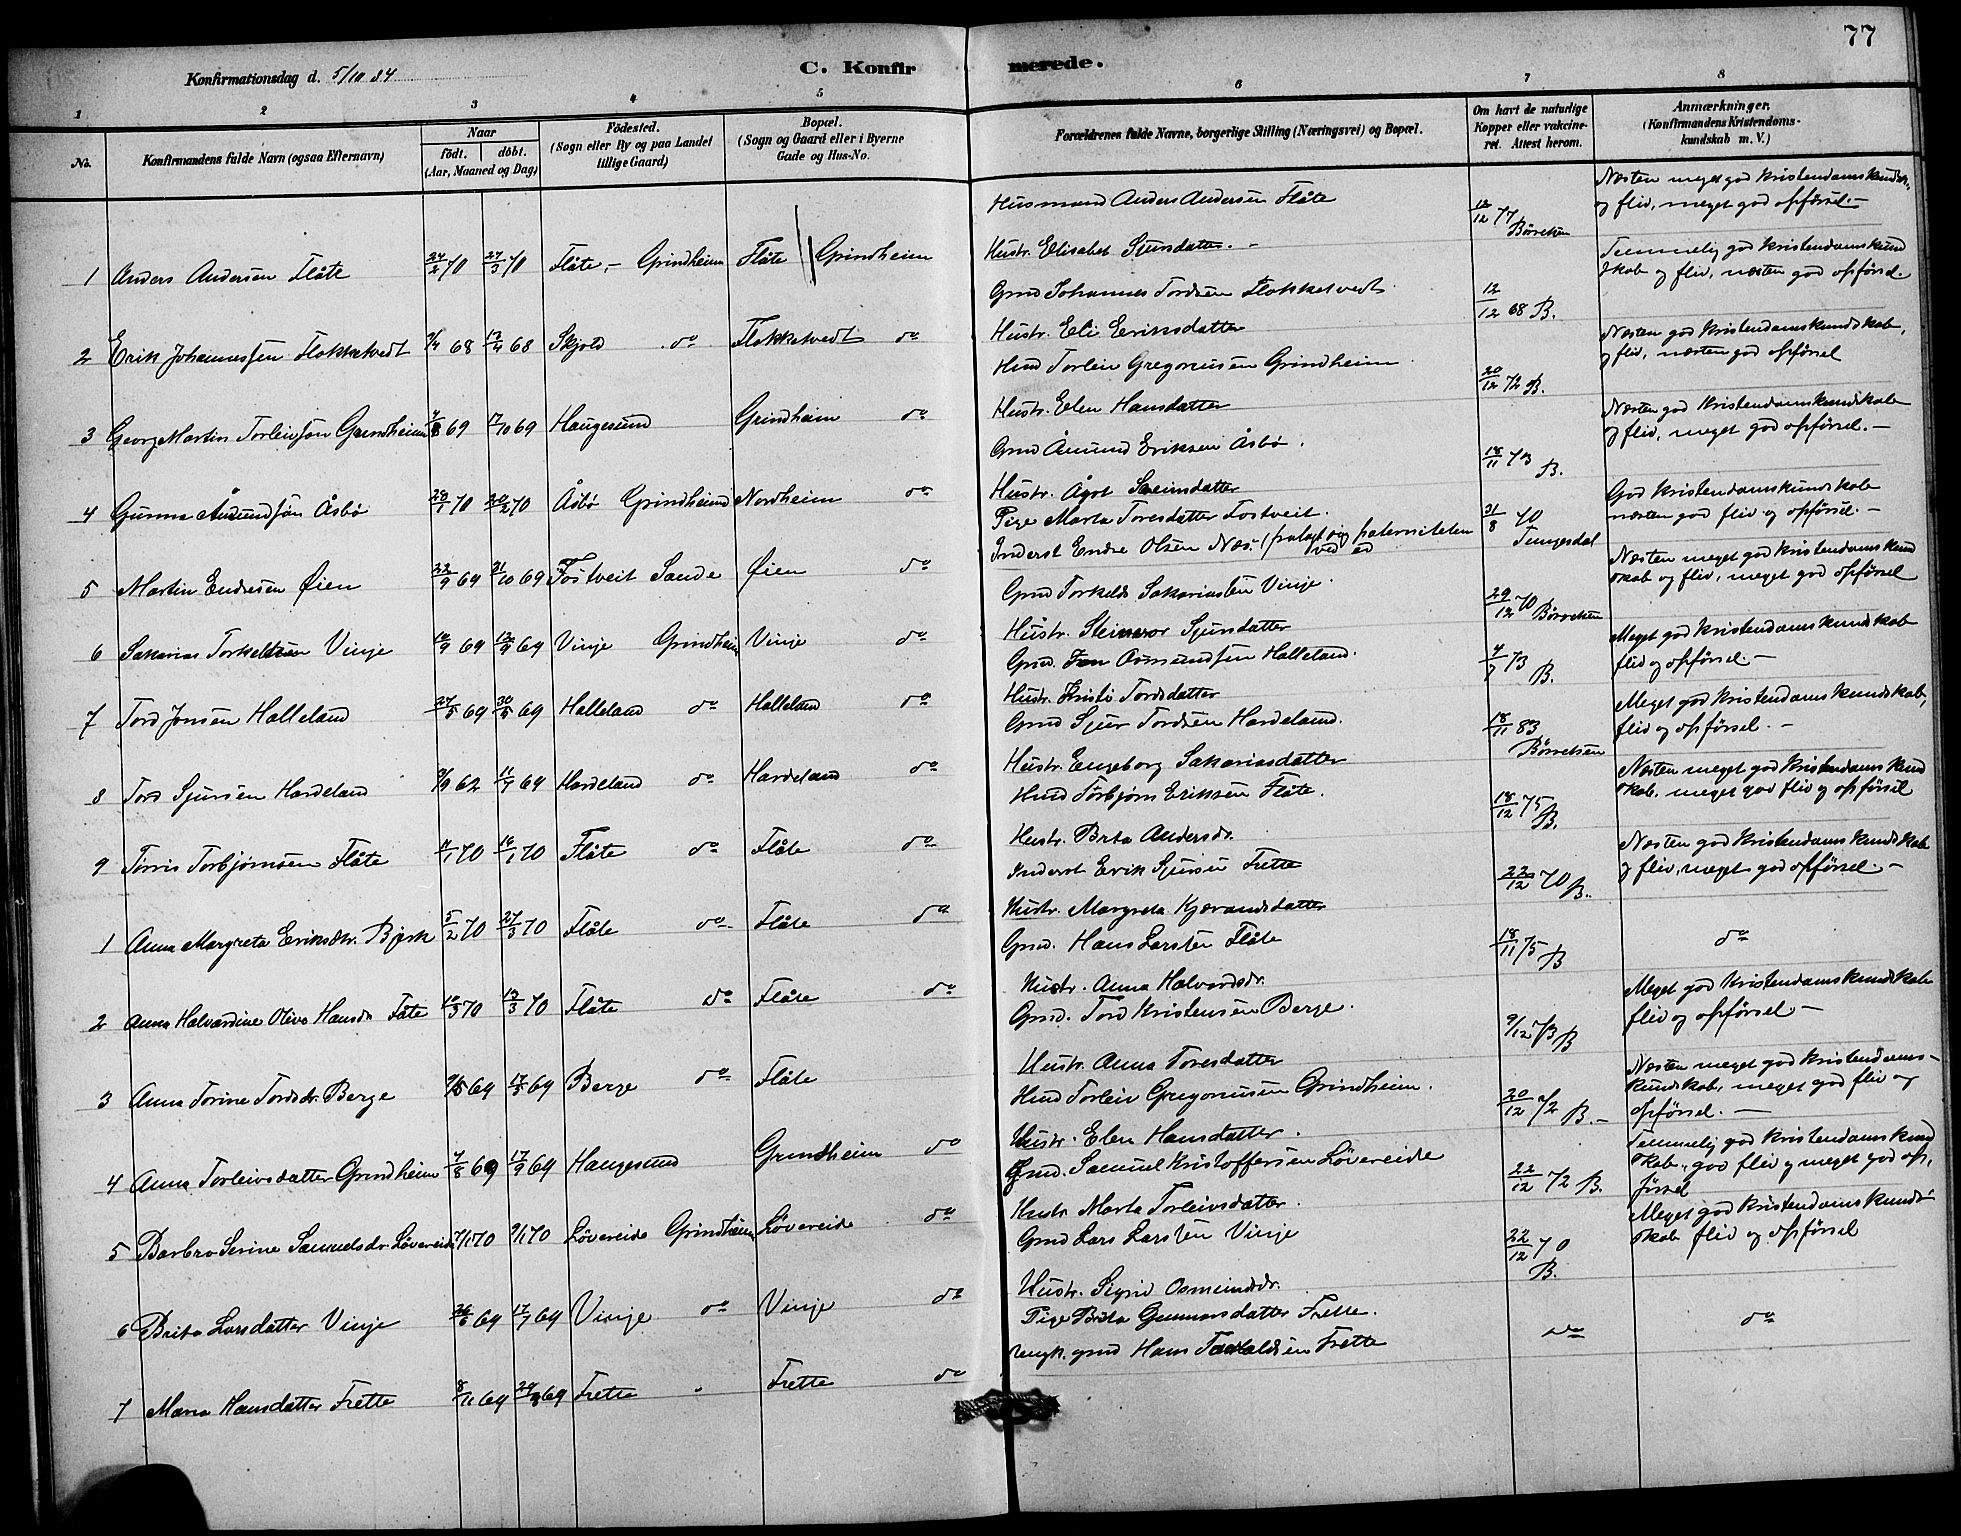 77
Konfirmationsdag d. 5/10 84
C. Konfirmerede.
1 2 3 4 5 6 7 8
No.
Konfirmandens fulde Navn (ogsaa Efternavn)
Naar
födt. döbt.
(Aar, Maaned og Dag)
Födested.
(Sogn eller By og paa Landet
tillige Gaard)
Bopæl.
(Sogn og Gaard eller i Byerne
Gade og Hus-No.
Forældrenes fulde Navne, borgerlige Stilling (Næringsvei) og Bopæl.
Om havt de naturlige
Kopper eller vakcine-
ret. Attest herom.
Anmærkninger,
(Konfirmandens Kristendoms-
kundskab m. V.)
1 Anders Andersen Flåte 24/2 70 27/3 70 Flåte, - Grindheim Flåte Grindheim
Husmand Anders Andersen Flåte
Hustr. Elisabet Sjursdatter. -
12/12 77 Börretsen
Næsten meget god Kristendomskundsk.,
og flid, meget god opförsel. -
2 Erik Johannessen Flokketvedt 68 12/4 68 Skjold do Flokketvedt do
Grmd Johannes Tordsen Flokketvedt
Hustr. Eli Eriksdatter
12/12 68 B.
Temmelig god kristendomskund
skab og flid, næsten god opförsel.
3 Georg Martin Torleivsön Grindheim 7/8 69 17/10 69 Haugesund Grindheim do
Hmd Torleiv Gregoriusen Grindheim
Hustr. Elen Hansdatter
20/12 72 B.
Næsten god Kristendomskundskab,
og flid, næsten god opförsel
4 Gunnar Åmundsön Åsbö 28/1 70 20/2 70 Åsbö Grindheim Nordheim do
Grmd Åmund Eriksen Åsbö.
Hustr. Ågot Sveinsdatter
18/11 73 B.
Næsten god kristendomskundskab
og flid, meget god opförsel. -
5 Martin Endresen Öien 22/9 69 31/10 69 Fostveit Sande Öien do
Pige Marta Toresdatter Fostveit.
Inderst Endre Olsen Næs. (fralagt sig paterniteten
ved ed
31/8 70 Tungesdal
God kristendomskundskab
næsten god flid og opförsel. -
6 Sakarias Torkeldsen Vinje 10/9 69 12/9 69 Vinje Grindheim Vinje do
Grmd Torkeld Sakariassen Vinje.
Hustr. Steinvor Sjursdatter
29/12 70 Börretsen
Næsten meget god Kristendomskund
skab og flid, meget god opförsel
7 Tord Jonsen Halleland 27/5 69 30/5 69 Halleland do Halleland do
Grmd. Jon Osmundsen Halleland.
Hustr. Kristi Tordsdatter
73 B.
Meget god kristendomskundskab
flid og opförsel -
8 Tord Sjursen Hardeland 62 11/7 69 Hardeland do Hardeland do
Grmd Sjur Tordsen Hardeland.
Hustr. Engeborg Sakariasdatter
18/11 83 Börretsen
Meget god kristendomskundskab,
flid og opförsel. -
9 Torris Torbjörnsen Flåte 11/1 70 16/1 70 Flåte do Flåte do
Hmd Torbjörn Eriksen Flåte.
Hustr. Brita Andersdr.
18/12 75 B.
Næsten meget god kristendomskund
skab, meget god flid og opförsel
1 Anna Margreta Eriksdtr. Bjørk 5/2 70 27/3 70 Flåte do Flåte do
Inderst Erik Sjursen Frette
Hustr. Margreta Kjærandsdatter
22/12 70 B.
Næsten god kristendomskundskab
og flid, meget god opförsel. -
2 Anna Halvardine Oliva Hansdr Flåte 10/3 70 13/3 70 Flåte do Flåte do
Grmd. Hans Larsen Flåte
Hustr. Anna Halvardsdr.
18/11 75 B
do
3 Anna Torine Tordsdr. Berge 69 17/5 69 Berge do Flåte
Grmd. Tord Kristensen Berge.
Hustr. Anna Toresdatter
9/12 73 B
Meget god Kristendomskundskab
flid og opförsel -
4 Anna Torleivsdatter Grindheim 7/8 69 17/9 69 Haugesund Grindheim do
Hmd Torleiv Gregoriusen Grindheim.
Hustr. Elen Hansdatter.
20/12 72 B. -
Næsten meget god kristendoms-
kundskab, meget god flid og
opförsel. -
5 Barbro Serine Samuelsdr Lövereide 7/1 70 9/1 70 Lövereide Grindheim Lövereide do
Grmd. Samuel Kristoffersen Lövereide
Hustr Marta Torleivsdatter.
22/12 72 B.
Temmelig god kristendomskund
skab, god flid og meget god op,
försel
6 Brita Larsdatter Vinje 26/6 69 17/7 69 Vinje do Vinje do
Grmd Lars Larsen Vinje
Hustr. Sigrid Osmundsdr.
22/12 70 B.
Meget god Kristendomskund-
skab flid og opförsel
7 Maria Hansdatter Frette 8/11 69 69 Frette " Frette do
Pige Brita Gunnarsdatter Frette.
ungk. grmd Hans Tarkaldsen Frette
do
do